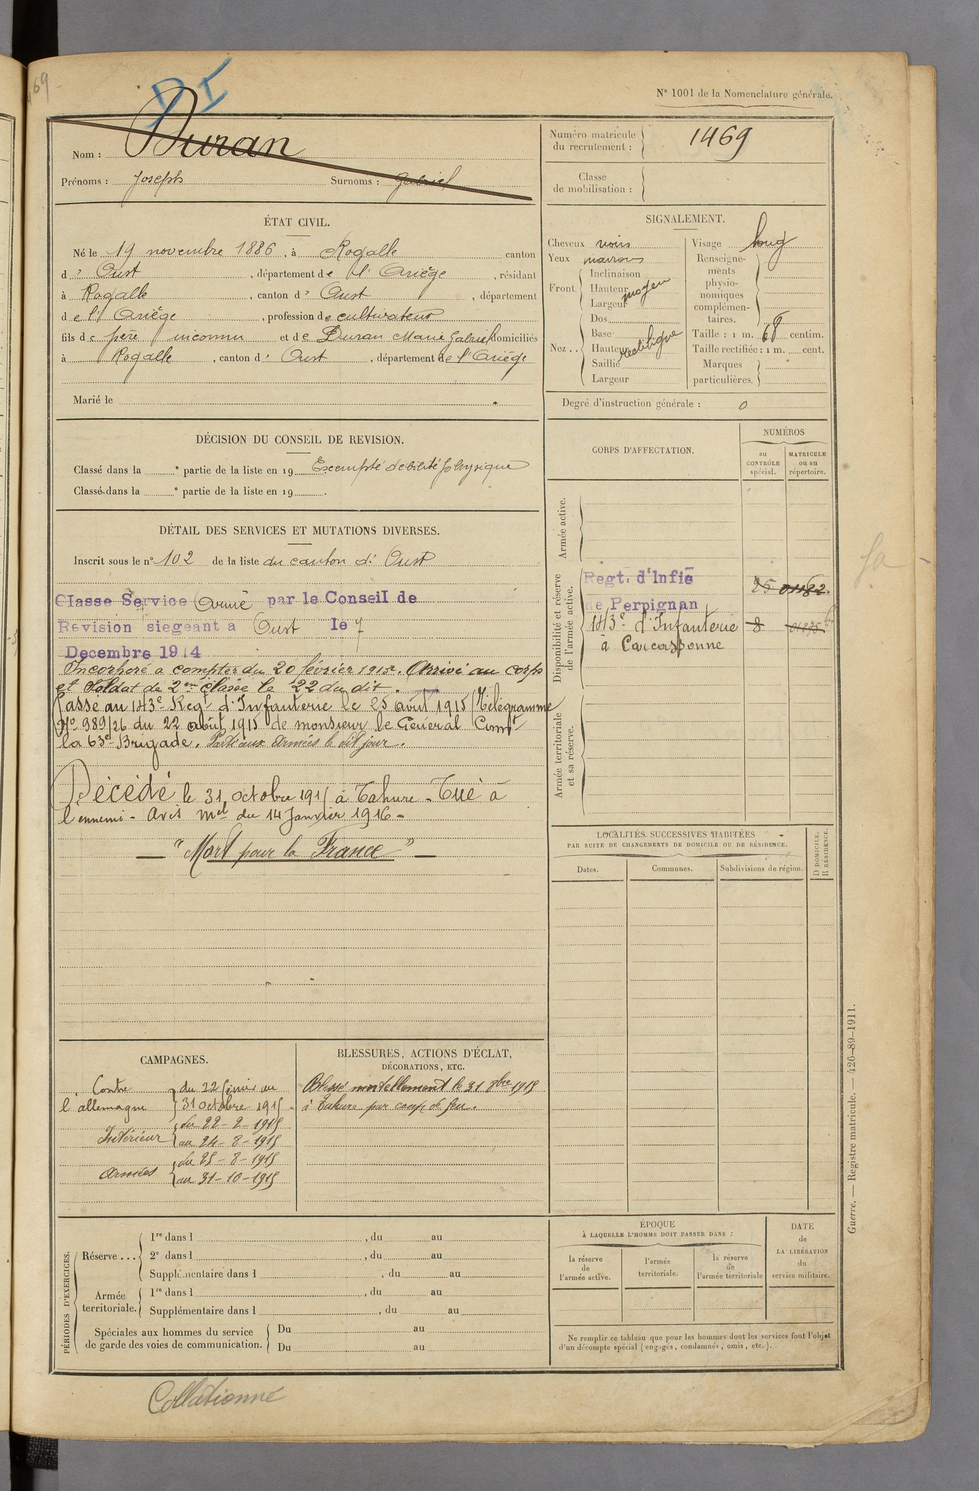 69
DI
N° 1001 de la Nomenclature générale.
Nom : Duran
Prénoms : Joseph Surnoms : Gabriel
Numéro matricule du recrutement : 1469
Classe de mobilisation :
ÉTAT CIVIL.
Né le 19 novembre 1886, à Rogalle canton
d' Oust, département de l'Ariège, résidant
à Rogalle, canton d' Oust, département
de l'Ariège, profession de cultivateur
fils de père inconnu et de Duran Marie Gabriel domiciliés
à Rogalle, canton d' Oust, département de l'Ariège
Marié le
SIGNALEMENT.
Cheveux noirs
Yeux marrons
Front Inclinaison
Hauteur moyen
Largeur
Nez.. Dos
Base
Hauteur rectiligne
Saillie
Largeur
Visage long
Renseignements physionomiques complémentaires.
Taille : 1 m. 68 centim.
Taille rectifiée : 1 m. cent.
Marques particulières.
Degré d'instruction générale : 0
DÉCISION DU CONSEIL DE REVISION.
Classé dans la e partie de la liste en 19 Exempté débilité physique
Classé dans la e partie de la liste en 19 .
DÉTAIL DES SERVICES ET MUTATIONS DIVERSES.
Inscrit sous le n° 102 de la liste du canton d' Oust
Classe Service Armé par le Conseil de
Revision siegeant a Oust le 7
Decembre 1914
Incorporé à compter du 20 février 1915. Arrivé au corps
et soldat de 2me classe le 22 du dit.
Passé au 143e Regt d'Infanterie le 25 août 1915 (Télégramme
No 989/26 du 22 août 1915 de monsieur le Général Commt
la 63e Brigade. Parti aux armées le dit jour.
Décédé le 31 octobre 1915 à Tahure - Tué à
l'ennemi - Avis mel du 14 Janvier 1916 -
— "Mort pour la France" —
CORPS D'AFFECTATION.
NUMÉROS
au CONTRÔLE spécial.
MATRICULE ou au répertoire.
Armée active.
Disponibilité et réserve de l'armée active.
Regt. d'Infie
de Perpignan 01182
143e d'Infanterie 8
à Carcassonne
Armée territoriale et sa réserve.
LOCALITÉS SUCCESSIVES HABITÉES
PAR SUITE DE CHANGEMENTS DE DOMICILE OU DE RÉSIDENCE.
Dates. Communes. Subdivisions de région.
D DOMICILE. R RÉSIDENCE.
CAMPAGNES.
Contre l'allemagne du 22 février au
31 octobre 1915 -
Intérieur du 22-2-1915
au 24-8-1915
Armées du 25-8-1915
au 31-10-1915
BLESSURES, ACTIONS D'ÉCLAT,
DÉCORATIONS, ETC.
Blessé mortellement le 31 8bre 1915
à Tahure par coup de feu.
PÉRIODES D'EXERCICES.
Réserve... 1re dans l , du au
2e dans l , du au
Supplémentaire dans l , du au
Armée territoriale. 1re dans l , du au
Supplémentaire dans l , du au
Spéciales aux hommes du service de garde des voies de communication. Du au
Du au
ÉPOQUE
À LAQUELLE L'HOMME DOIT PASSER DANS :
la réserve de l'armée active.
l'armée territoriale.
la réserve de l'armée territoriale
DATE de LA LIBÉRATION du service militaire.
Ne remplir ce tableau que pour les hommes dont les services font l'objet
d'un décompte spécial (engagés, condamnés, omis, etc.).
Guerre. — Registre matricule. — 426-89-1911.
Collationné